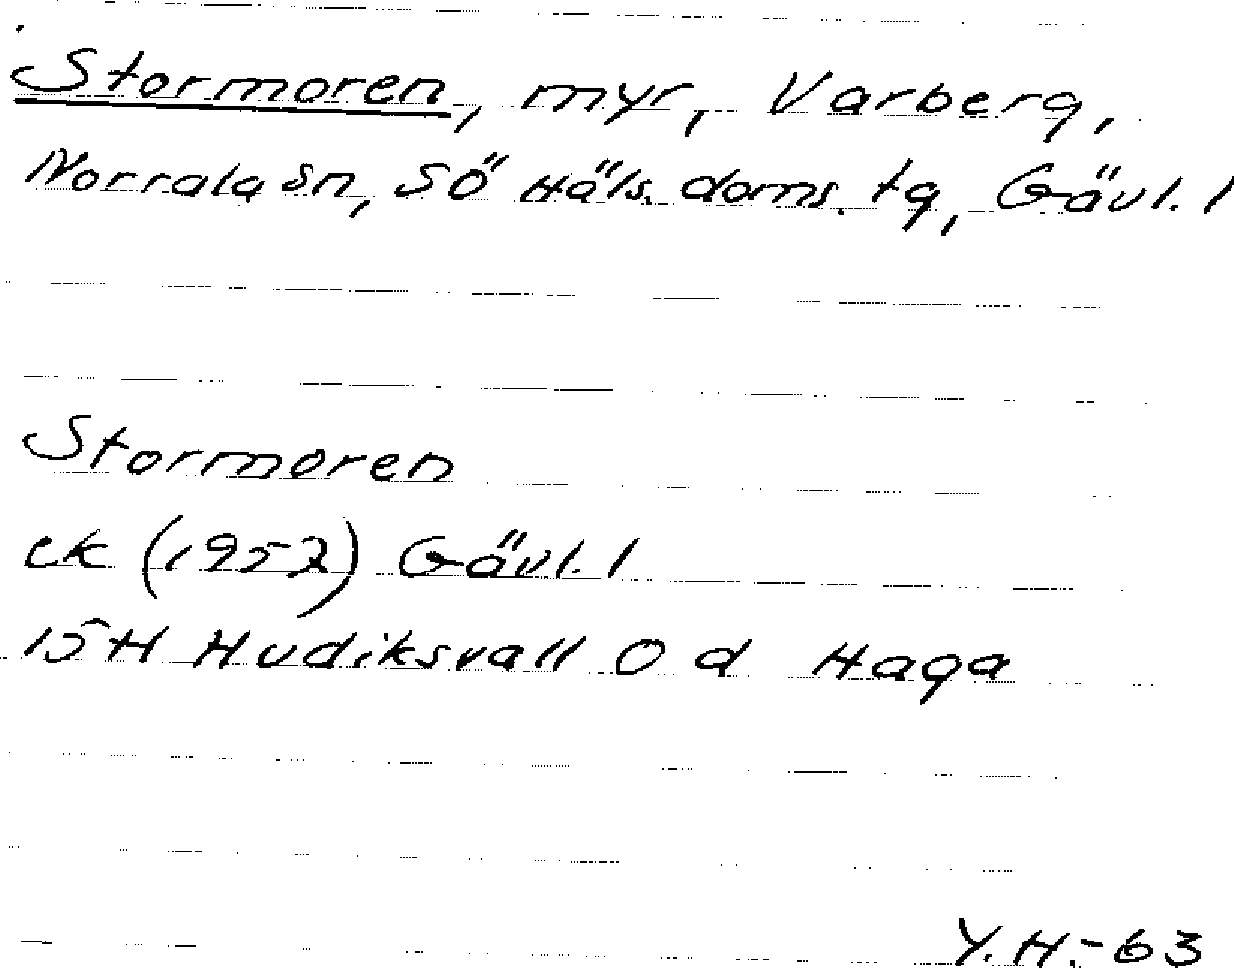 Stormoren, myr, Varberg,
Norrala sn, Sö Häls. doms. tg, Gävl. l
Stormoren
ek (1957) Gävl. l
15H Hudiksvall 0 d Haga
Y.H.-63